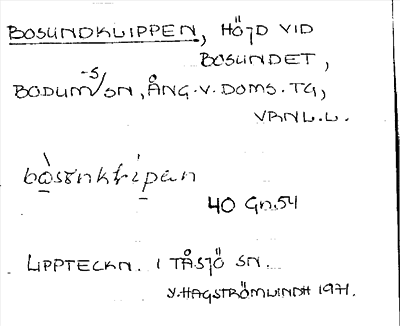 BOSUNDKLIPPEN, HÖJD VID
BOSUNDET,
BODUM-S/SN, ÅNG.V.DOMS.TG,
VRNL.L.
bòsünktrípan
40 Gn.54
UPPTECKN. I TÅSJÖ SN.
HAGSTRÖMLINDH 1971.